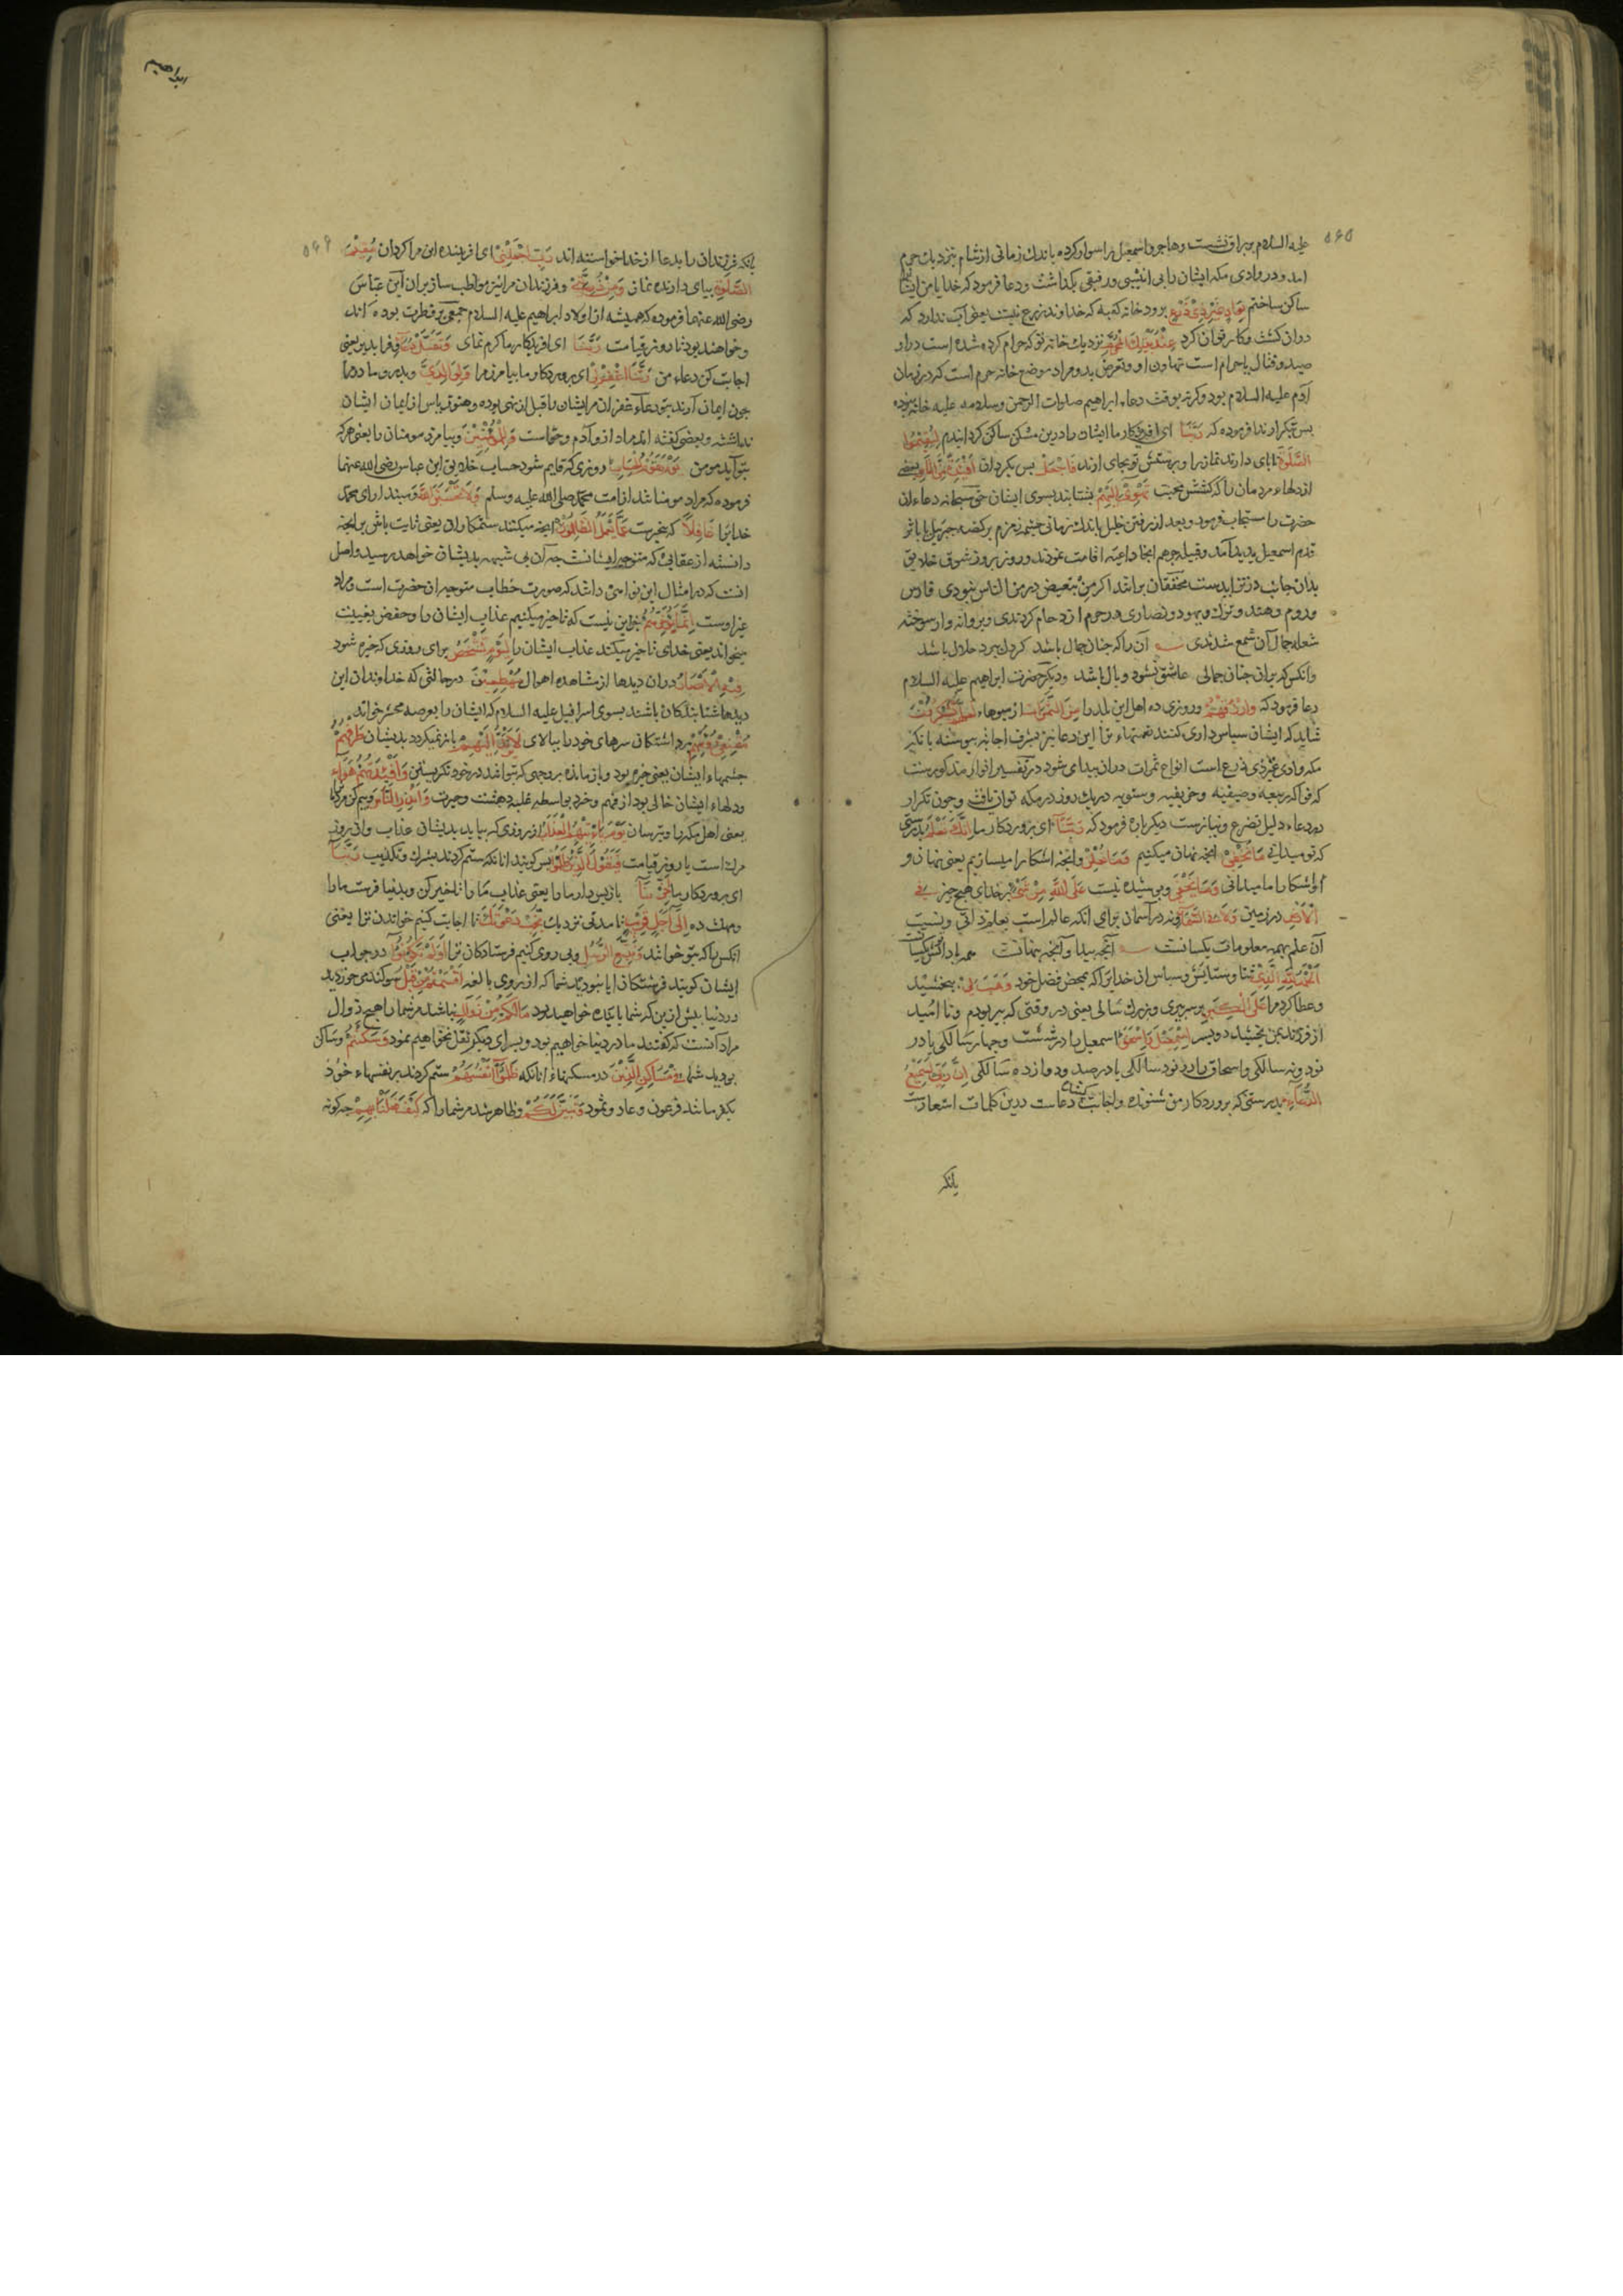 ۵۶۵
علیه السلام بر براق نشست وهاجر واسمعیل را سوار کرده باندک زمانی از شام بنزدیک حرم
امد ودر وادی مکه ایشان را بی انیسی ورفیقی بگذاشت ودعا فرمود که خدایا من ایشانرا
ساکن ساختم بِوَادٍ غَيْرِ ذِي زَرْعٍ برود خانه که به که خداوند زرع نیست یعنی آب ندارد که
دران کشت وکار توان کرد عِنْدَ بَيْتِكَ الْمُحَرَّمِ نزدیک خانه تو که حرام کرده شده است درو
صید وقتال یا حرام است تهاون او وتعرض بدو ومراد موضع خانه حرم است که در زمان
آدم علیه السلام بود وکرنه بوقت دعاء ابراهیم صلوات الرحمن وسلامه علیه خانه نبوده
پس تکرار ندا فرموده که رَبَّنَا ای افریدکار ما ایشان را درین مسکن ساکن کردانیدم لِيُقِيمُوا
الصَّلٰوةَ تا بپای دارند نماز را وپرستش تو بجای ارند فَاجْعَلْ پس بکردان اَفْئِدَةً مِنَ النَّاسِ بعضی
از دلهاء مردمان را که کشش محبت تَهْوِي اِلَيْهِمْ بشتابند بسوی ایشان حق سبحانه دعاء ان
حضرت را مستجاب فرمود وبعد از رفتن خلیل باندک زمانی چشمه زمزم برکضه جبریل یا باثر
قدم اسمعیل پدید آمد وقبیله جرهم انجا داعیه اقامت نمودند وروز بروز شوق خلایق
بدان جانب در تزایدست محققان برانند اکر مِن تبعیض در من الناس نبودی فارس
وروم وهند وترک ویهود ونصاری در حرم ازدحام کردندی وپروانه وار سوخته
شعله جمال آن شمع شدندی آن را که چنان جمال باشد کر دل ببرد حلال باشد
وانکس که بران چنان جمالی عاشق نشود وبال باشد ودیکر حضرت ابراهیم علیه السلام
دعا فرمود که وَارْزُقْهُمْ وروزی ده اهل این بلد را مِنَ الثَّمَرَاتِ از میوهاء لَعَلَّهُمْ يَشْكُرُونَ
شاید که ایشان سپاس داری کنند نعمتهاء ترا این دعا نیز بشرف اجابه پیوسته با انکه
مکه وادی غیر ذی زرع است انواع ثمرات دران پیدا می شود در تفسیر انوار مذکورست
که فواکه ربیعیه وصیفیه وخریفیه وشتویه در یک روز در مکه توان یافت وچون تکرار
در دعاء دلیل تضرع ونیازست دیکر باره فرمود که رَبَّنَا ای پروردکار ما اِنَّكَ تَعْلَمُ بدرستی
که تو میدانی مَا نُخْفِي انچه نهان میکنیم وَمَا نُعْلِنُ وانچه اشکارا میسازیم یعنی نهان و
اشکارا ما میدانی وَمَا يَخْفٰى وپوشیده نیست عَلَى اللّٰهِ مِنْ شَيْءٍ بر خدای هیچ چیز فِي
الْاَرْضِ در زمین وَلَا فِي السَّمَاءِ ونه در اسمان برای انکه عالم است بعلم ذاتی ونسبت
آن علم بهمه معلومات یکسانست آنچه پیدا وآنچه پنهانست
اَلْحَمْدُ لِلّٰهِ الَّذِي ثنا وستایش وسپاس ان خدایرا که بمحض فضل خود وَهَبَ لِي ببخشید
وعطا کرد مرا عَلَى الْكِبَرِ بر سر پیری وبزرک سالی یعنی در وقتی که پیر بودم ونا امید
از فرزند بمن بخشید دو پسر اِسْمٰعِيْلَ وَاِسْحٰقَ اسمعیل را در شصت وچهار سالکی یا در
نود ونه سالکی واسحاق را در نود سالکی یا در صد ودوازده سالکی اِنَّ رَبِّي لَسَمِيْعُ
الدُّعَاءِ بدرستی که پروردکار من شنونده واجابت کننده دعاست درین کلمات اشعارست
بانکه
ابراهیم
۵۶۶
بانکه فرزندان را بدعا از خدا خواسته اند رَبِّ اجْعَلْنِي ای افریننده این مرا کردان مُقِيْمَ
الصَّلٰوةِ بپای دارنده نماز وَمِنْ ذُرِّيَّتِي وفرزندان مرا نیز مواظب ساز بران ابن عباس
رضی الله عنهما فرموده که همیشه از اولاد ابراهیم علیه السلام جمعی بر فطرت بوده اند
وخواهند بود تا روز قیامت رَبَّنَا ای افریدکار ما کرم نمای وَتَقَبَّلْ دُعَاءِ وفرا پذیر یعنی
اجابت کن دعاء من رَبَّنَا اغْفِرْ لِي ای پروردکار ما بیامرز مرا وَلِوَالِدَيَّ وپدر وما در مرا
چون ایمان آرند بتو دعاء غفران مر ایشان را قبل از نهی بوده وهنوز یاس از ایمان ایشان
نداشته وبعضی کفته اند مراد ازو آدم وحواست وَلِلْمُؤْمِنِيْنَ وبیامرز مومنان را یعنی هر که
بتو آید مومن يَوْمَ يَقُوْمُ الْحِسَابُ روزی که قایم شود حساب خلایق ابن عباس رضی الله عنهما
فرموده که مراد مومنا شد از امت محمد صلی الله علیه وسلم وَلَا تَحْسَبَنَّ اللّٰهَ ومپندار ای محمد
خدایرا غَافِلًا که بیخبرست عَمَّا يَعْمَلُ الظَّالِمُوْنَ انچه میکنند ستمکاران یعنی ثابت باش بر انچه
دانسته از عقابی که متوجه ایشانست چه آن بی شبهه بدیشان خواهد رسید واصل
انست که در امثال این نواهی داشد که صورت خطاب متوجه ان حضرت است ومراد
غیر اوست اِنَّمَا يُؤَخِّرُهُمْ جز این نیست که تاخیر میکنیم عذاب ایشان را وحفص بغیبت
میخواند یعنی خدای تاخیر میکند عذاب ایشان را لِيَوْمٍ تَشْخَصُ برای روزی که خیره شود
فِيْهِ الْاَبْصَارُ دران دیدها از مشاهده اهوال مُهْطِعِيْنَ در حالتی که خداوندان این
دیدها شتابندکان باشند بسوی اسرافیل علیه السلام که ایشان را بعرصه محشر خواند
مُقْنِعِي رُءُوْسِهِمْ برداشتکان سرهای خود را ببالای لَا يَرْتَدُّ اِلَيْهِمْ باز نمیکردد بدیشان طَرْفُهُمْ
چشمهاء ایشان یعنی خیره بود وباز مانده بر وجهی که نتوانند در خود نکریستن وَاَفْئِدَتُهُمْ هَوَاءٌ
ودلهاء ایشان خالی بود از فهم وخرد بواسطه غلبه دهشت وحیرت وَاَنْذِرِ النَّاسَ وبیم کن مردمانرا
یعنی اهل مکه را وبترسان يَوْمَ يَاْتِيْهِمُ الْعَذَابُ از روزی که بیاید بدیشان عذاب وان روز
مرک است یا روز قیامت فَيَقُوْلُ الَّذِيْنَ ظَلَمُوْا پس کویند انانکه ستم کردند بشرک وتکذیب رَبَّنَا
ای پروردکار ما اَخِّرْنَا باز پس دار ما را یعنی عذاب ما را تاخیر کن وبدنیا فرست ما را
ومهلت ده اِلٰى اَجَلٍ قَرِيْبٍ تا مدتی نزدیک نُجِبْ دَعْوَتَكَ تا اجابت کنیم خواندن ترا یعنی
انکس را که بتو خواند وَنَتَّبِعِ الرُّسُلَ وپی روی کنیم فرستادکان ترا اَوَلَمْ تَكُوْنُوْا در جواب
ایشان کویند فرشتکان ایا نبودید شما که از روی مبالغه اَقْسَمْتُمْ مِنْ قَبْلُ سوکندمی خوردید
در دنیا پیش ازین که شما پاینده خواهید بود مَا لَكُمْ مِنْ زَوَالٍ نباشد مر شما را هیچ زوال
مراد آنست که کفتند ما در دنیا خواهیم بود وبسرای دیکر نقل نخواهیم نمود وَسَكَنْتُمْ وساکن
بودید شما فِي مَسَاكِنِ الَّذِيْنَ در مسکنهاء انانکه ظَلَمُوْا اَنْفُسَهُمْ ستم کردند بر نفسهاء خود
بکفر مانند فرعون وعاد وثمود وَتَبَيَّنَ لَكُمْ وظاهر شد مر شما را که كَيْفَ فَعَلْنَا بِهِمْ چکونه